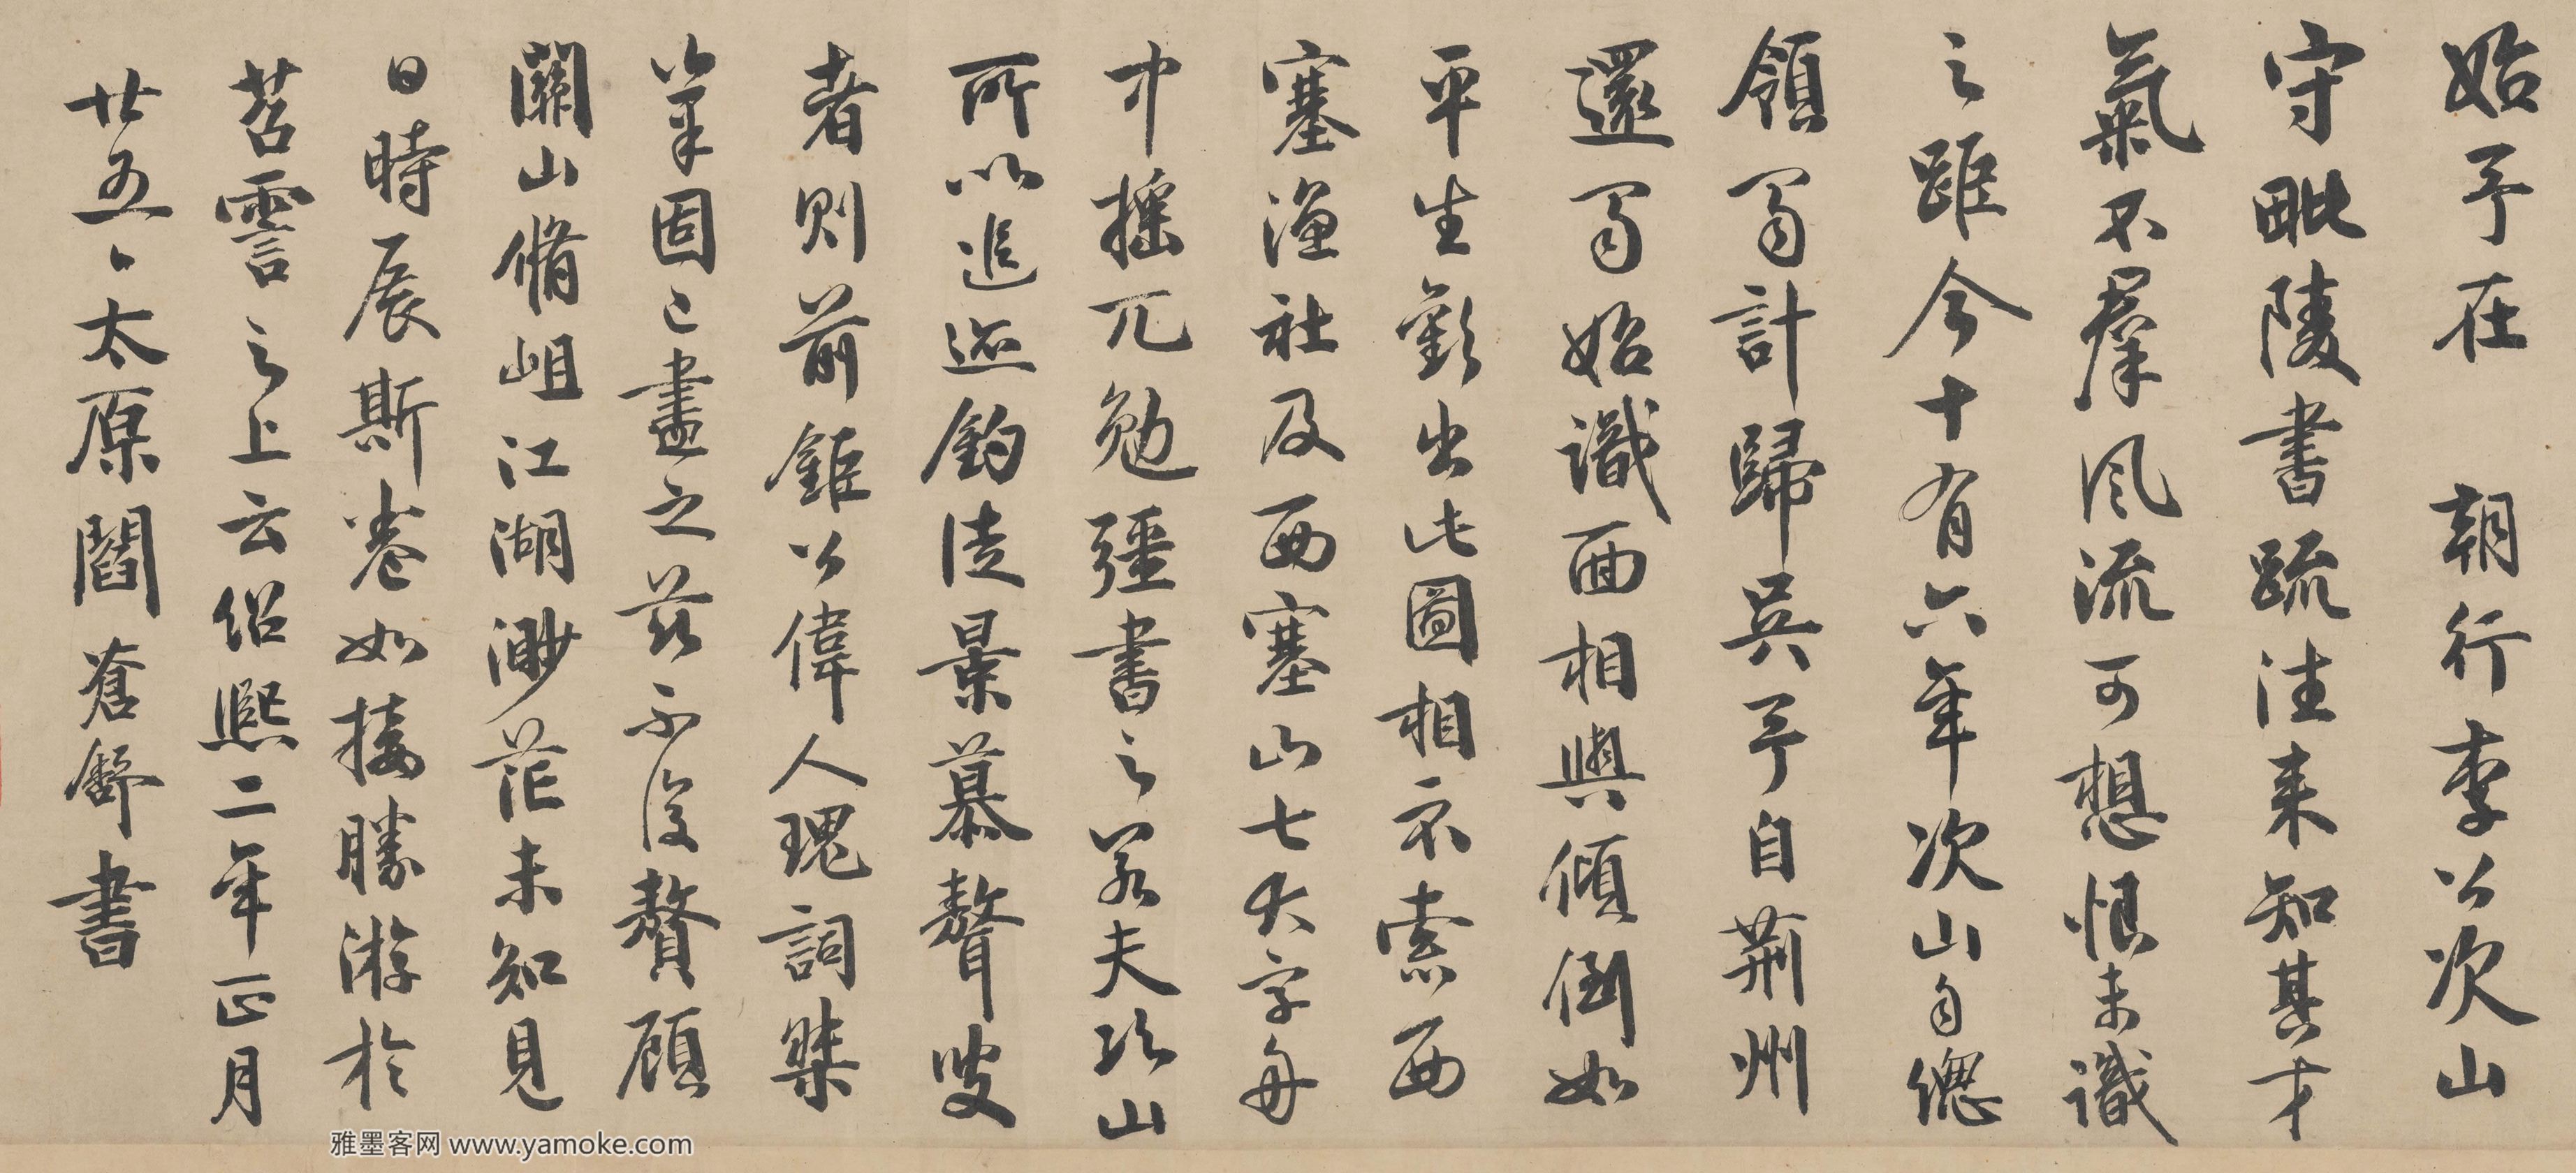 始予在　朝行李公次山
守毗陵書疏往来知其才
氣不羣風流可想恨未識
之雖今十有六年次山自總
領蜀計歸吳予自荊州
還蜀始識面相與傾倒如
平生歡出此圖相示索西
塞漁社及西塞山七大字舟
中搖兀勉強書之若夫次山
所以追迹釣徒景慕聱叟
者則前鉅公偉人瑰詞桀
筆固已盡之茲不復贅顧
關山脩岨江湖渺茫未知見
日時展斯卷如接勝游於
苕霅之上云紹熙二年正月
廿五日太原閻蒼舒書
雅墨客网 www.yamoke.com